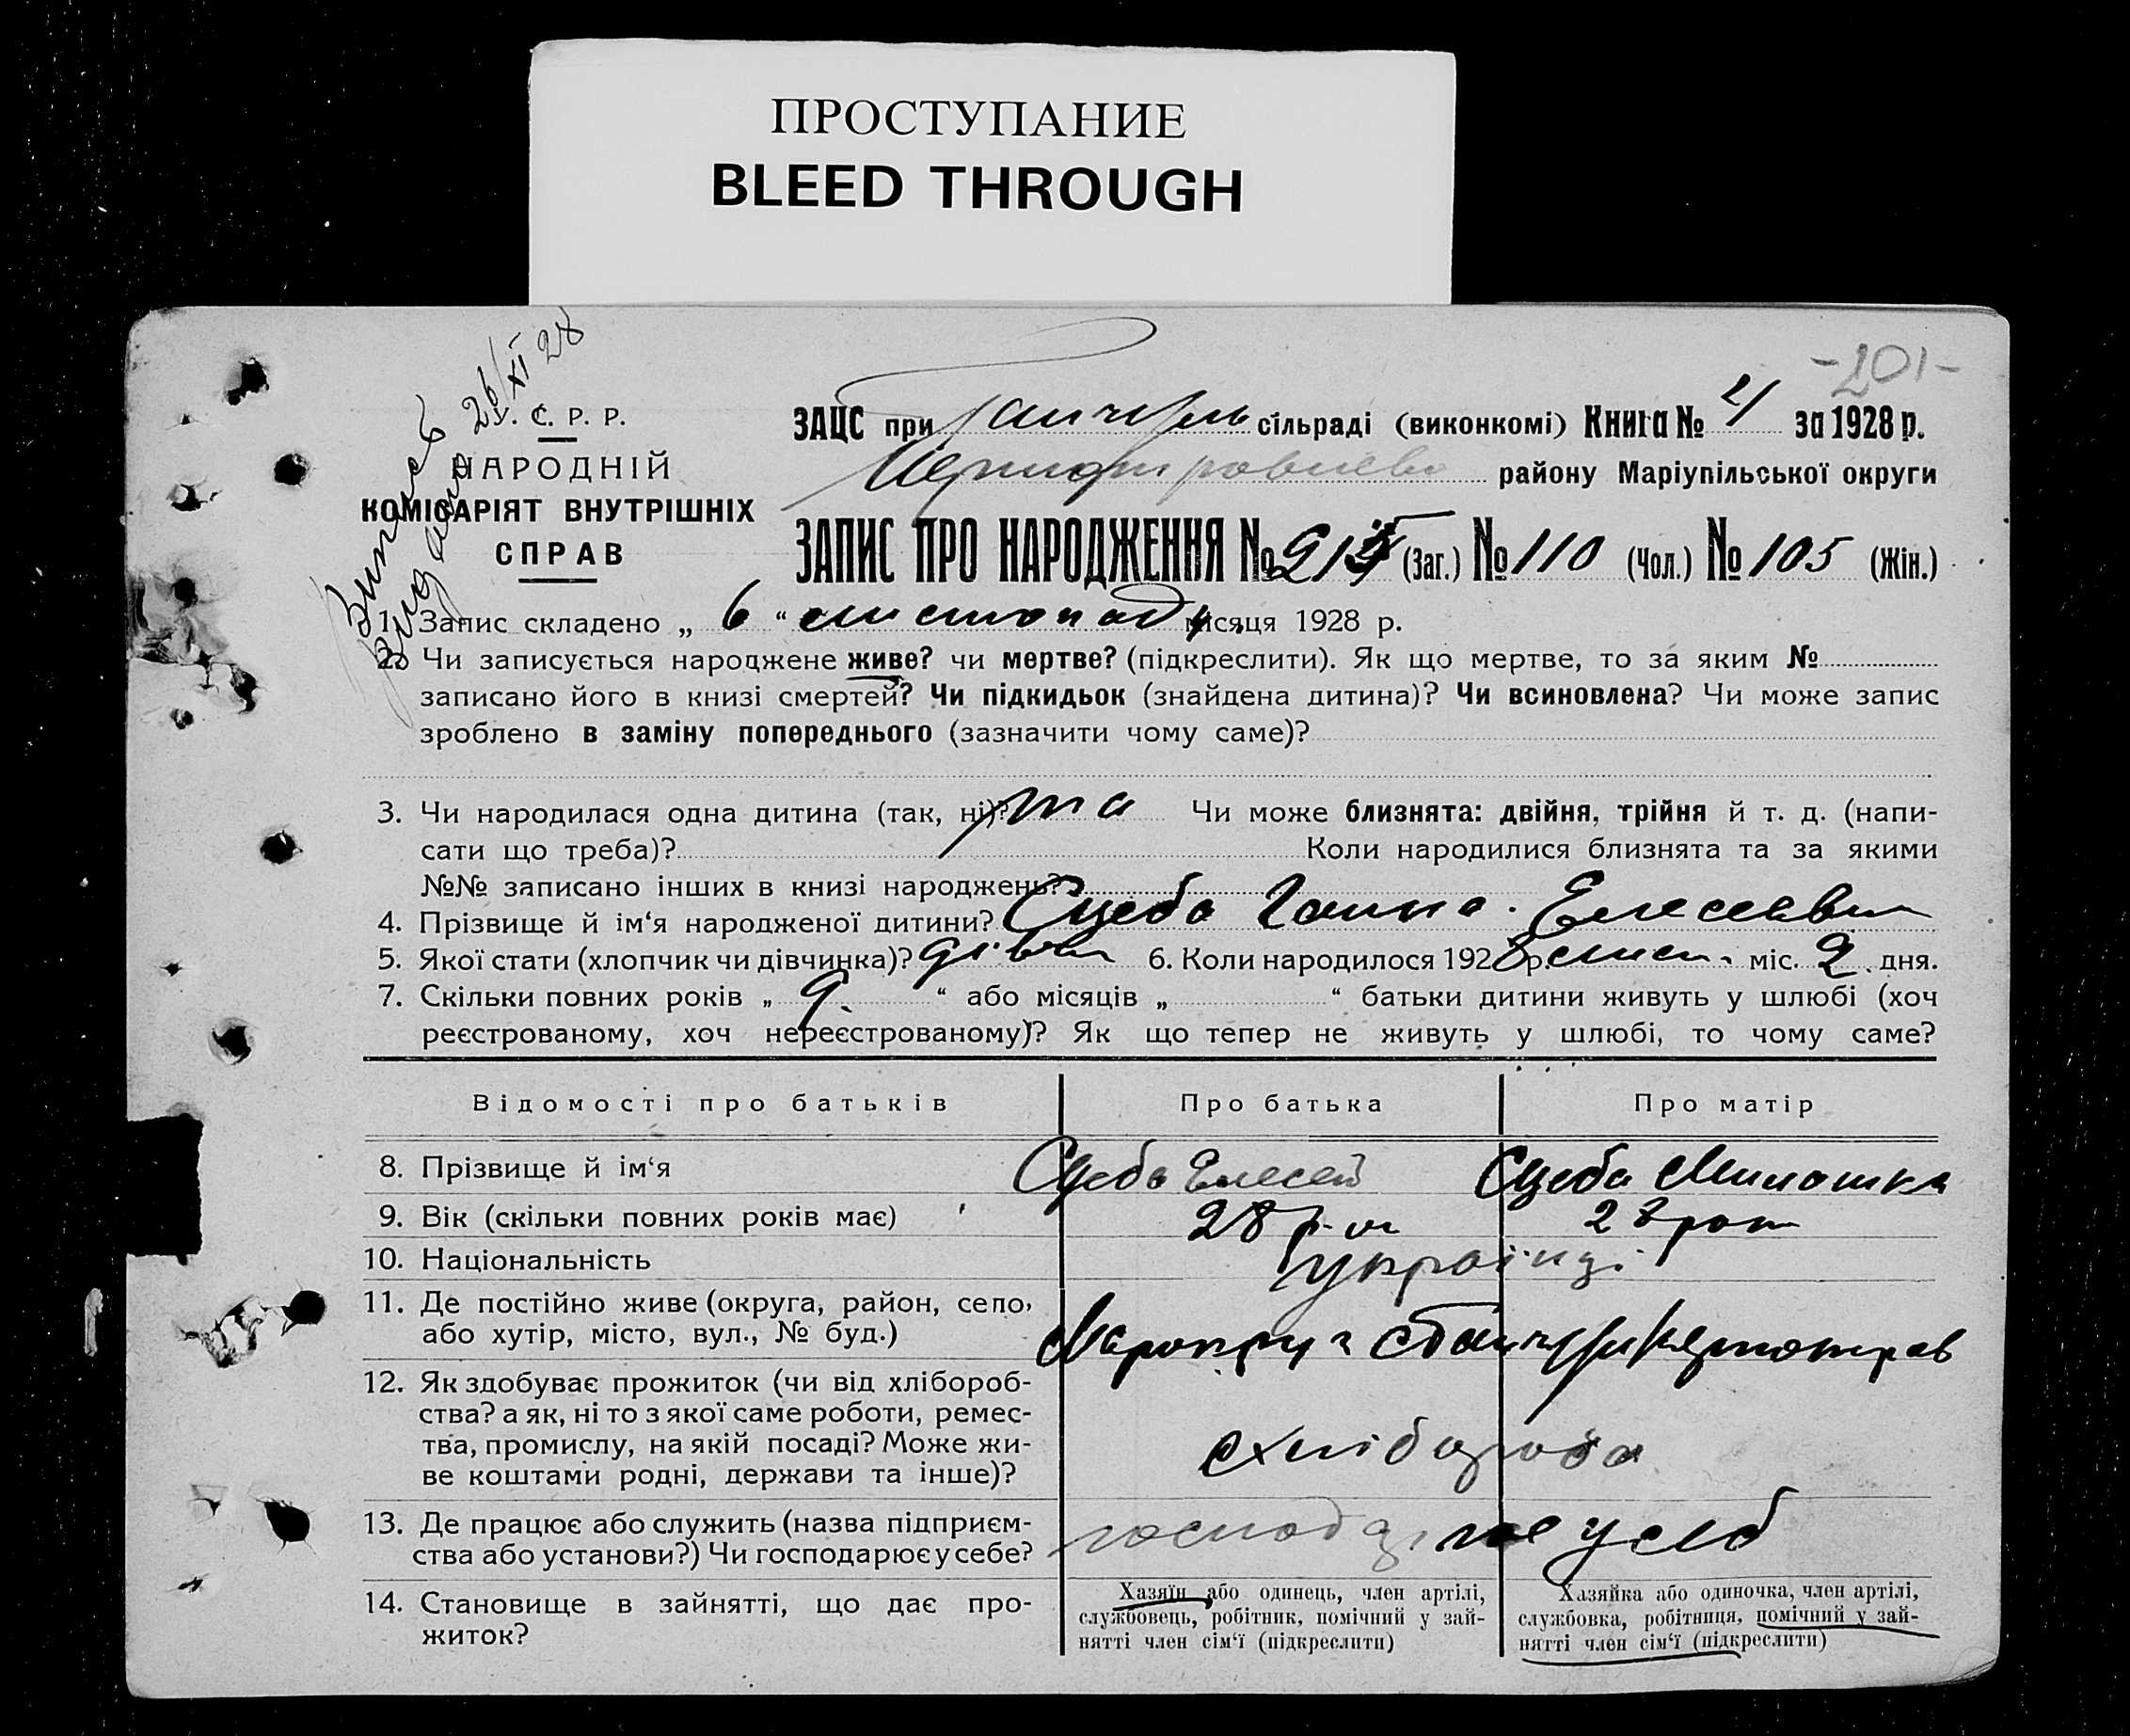 ПРОСТУПАНИЕ
BLEED THROUGH
-201-
26/XI 28
У. С. Р. Р.
НАРОДНІЙ
КОМІСАРІЯТ ВНУТРІШНІХ
СПРАВ
ЗАЦС при сільраді (виконкомі) Книга № 4 за 1928 р.
району Маріупільської округи
ЗАПИС ПРО НАРОДЖЕННЯ № 215 (Заг.) № 110 (Чол.) № 105 (Жін.)
1. Запис складено „ 6 “ листопаду місяця 1928 р.
2. Чи записується народжене живе? чи мертве? (підкреслити). Як що мертве, то за яким №
записано його в книзі смертей? Чи підкидьок (знайдена дитина)? Чи всиновлена? Чи може запис
зроблено в заміну попереднього (зазначити чому саме)?
3. Чи народилася одна дитина (так, ні)? Чи може близнята: двійня, трійня й т. д. (напи-
сати що треба)? Коли народилися близнята та за якими
№№ записано інших в книзі народжень?
4. Прізвище й ім‘я народженої дитини? Сцеба Ганна
5. Якої стати (хлопчик чи дівчинка)? дівч 6. Коли народилося 1928 р. лист. міс. 2 дня.
7. Скільки повних років „ 9 “ або місяців „ “ батьки дитини живуть у шлюбі (хоч
реєстрованому, хоч нереєстрованому)? Як що тепер не живуть у шлюбі, то чому саме?
Відомості про батьків Про батька Про матір
8. Прізвище й ім‘я Сцеба Елесей Сцеба Милашка
9. Вік (скільки повних років має) 28 28
10. Національність українці
11. Де постійно живе (округа, район, село,
або хутір, місто, вул., № буд.)
12. Як здобуває прожиток (чи від хлібороб-
ства? а як, ні то з якої саме роботи, ремес-
тва, промислу, на якій посаді? Може жи-
ве коштами родні, держави та інше)?
хлібороба
13. Де працює або служить (назва підприєм-
ства або установи?) Чи господарює у себе?
14. Становище в зайнятті, що дає про-
житок?
Хазяїн або одинець, член артілі,
службовець, робітник, помічний у зай-
нятті член сім‘ї (підкреслити)
Хазяйка або одиночка, член артілі,
службовка, робітниця, помічний у зай-
нятті член сім‘ї (підкреслити)